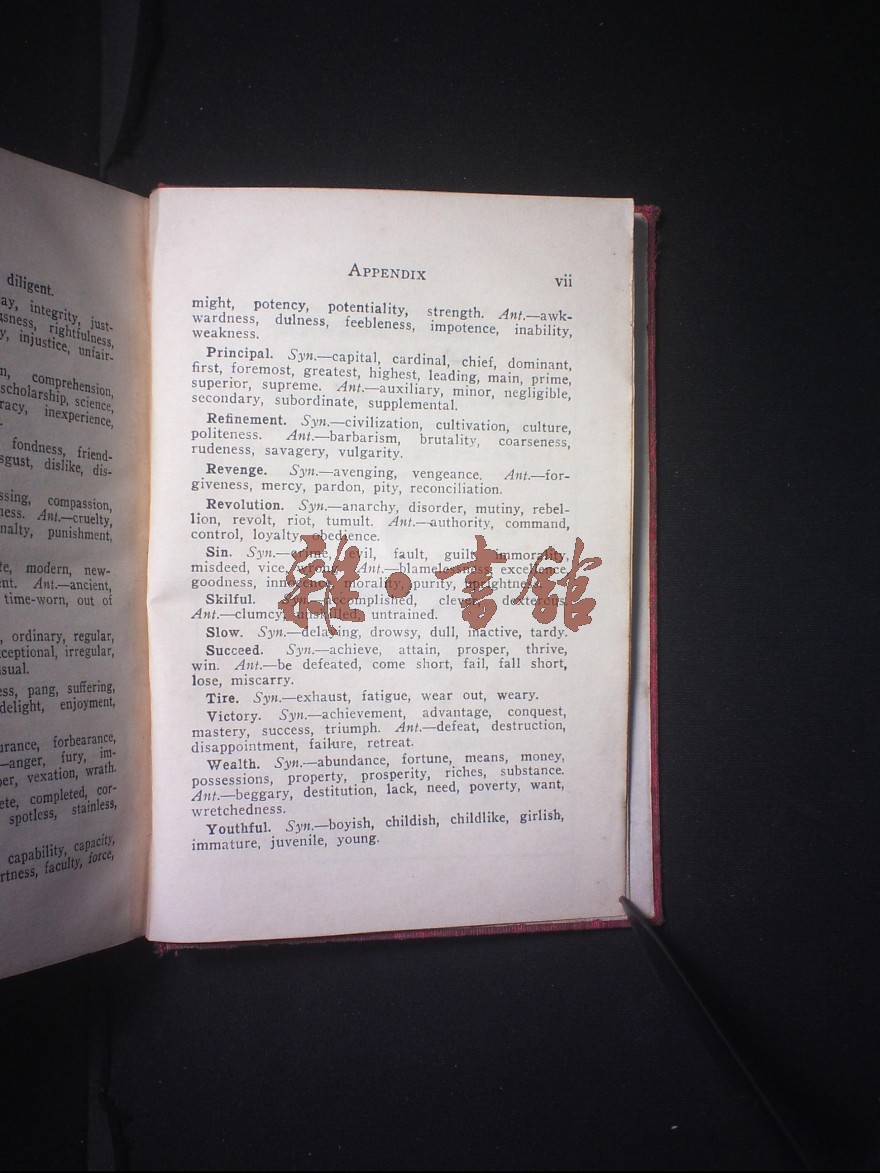 diligent.
integrity, just-
rightfulness,
injustice, unfair-
comprehension,
scholarship, science,
inexperience,
fondness, friend-
dislike, dis-
compassion,
Ant.—cruelty,
punishment,
modern, new-
Ant.—ancient,
time-worn, out of
ordinary, regular,
irregular,
pang, suffering,
delight, enjoyment,
forbearance,
—anger, fury, im-
vexation, wrath.
completed, cor-
spotless, stainless,
capability, capacity,
faculty, force,
APPENDIX
vii
might, potency, potentiality, strength. Ant.—awk-
wardness, dulness, feebleness, impotence, inability,
weakness.
Principal. Syn.—capital, cardinal, chief, dominant,
first, foremost, greatest, highest, leading, main, prime,
superior, supreme. Ant.—auxiliary, minor, negligible,
secondary, subordinate, supplemental.
Refinement. Syn.—civilization, cultivation, culture,
politeness. Ant.—barbarism, brutality, coarseness,
rudeness, savagery, vulgarity.
Revenge. Syn.—avenging, vengeance. Ant.—for-
giveness, mercy, pardon, pity, reconciliation.
Revolution. Syn.—anarchy, disorder, mutiny, rebel-
lion, revolt, riot, tumult. Ant.—authority, command,
control, loyalty, obedience.
Sin. Syn.—crime, evil, fault, guilt, immorality,
misdeed, vice, wrong. Ant.—blamelessness, excellence,
goodness, innocence, morality, purity, uprightness.
Skilful. Syn.—accomplished, clever, dexterous.
Ant.—clumcy, unskilled, untrained.
Slow. Syn.—delaying, drowsy, dull, inactive, tardy.
Succeed. Syn.—achieve, attain, prosper, thrive,
win. Ant.—be defeated, come short, fail, fall short,
lose, miscarry.
Tire. Syn.—exhaust, fatigue, wear out, weary.
Victory. Syn.—achievement, advantage, conquest,
mastery, success, triumph. Ant.—defeat, destruction,
disappointment, failure, retreat.
Wealth. Syn.—abundance, fortune, means, money,
possessions, property, prosperity, riches, substance.
Ant.—beggary, destitution, lack, need, poverty, want,
wretchedness.
Youthful. Syn.—boyish, childish, childlike, girlish,
immature, juvenile, young.
雜·書館